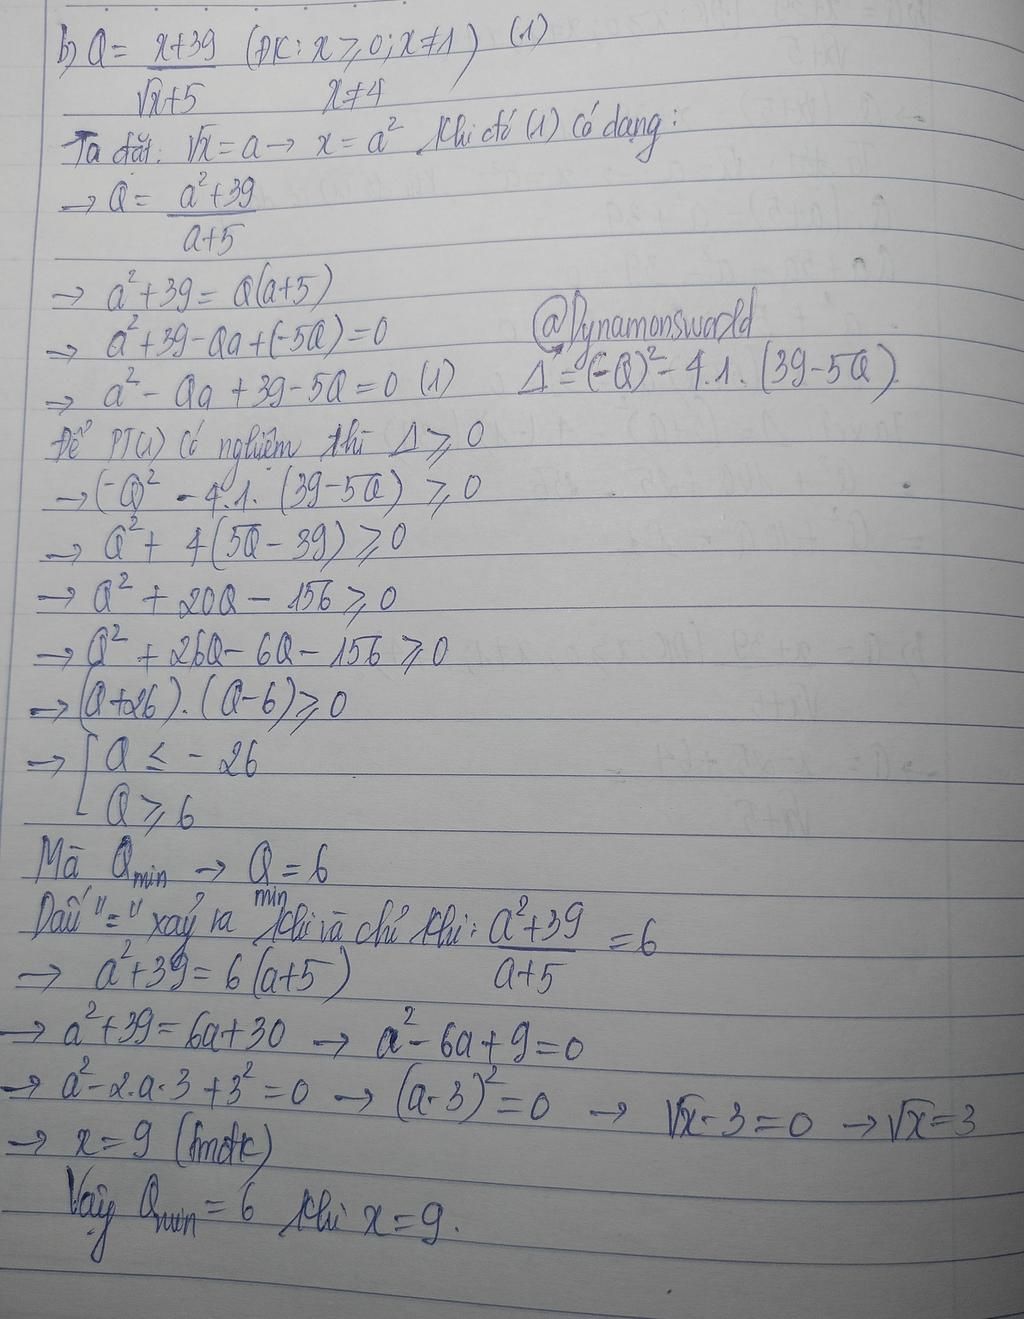 b, Q = x+39 / √x+5 (ĐK: x ≥ 0; x ≠ 1) (1)
x ≠ 4
Ta đặt: √x = a → x = a² Khi đó (1) có dạng:
→ Q = a²+39 / a+5
→ a²+39 = Q(a+5)
→ a²+39-Qa+(-5Q)=0
@Dynamonsworld
→ a² - Qa + 39 - 5Q = 0 (1)
Δ = (-Q)² - 4.1.(39-5Q)
Để PT(1) có nghiệm thì Δ ≥ 0
→ (-Q)² - 4.1.(39-5Q) ≥ 0
→ Q² + 4(5Q - 39) ≥ 0
→ Q² + 20Q - 156 ≥ 0
→ Q² + 26Q - 6Q - 156 ≥ 0
→ (Q+26).(Q-6) ≥ 0
→ [ Q ≤ - 26
Q ≥ 6
Mà Qmin → Qmin = 6
Dấu "=" xảy ra khi và chỉ khi: a²+39 / a+5 = 6
→ a²+39 = 6(a+5)
→ a²+39 = 6a+30 → a² - 6a + 9 = 0
→ a² - 2.a.3 + 3² = 0 → (a-3)² = 0 → √x - 3 = 0 → √x = 3
→ x = 9 (tmđk)
Vậy Qmin = 6 khi x = 9.